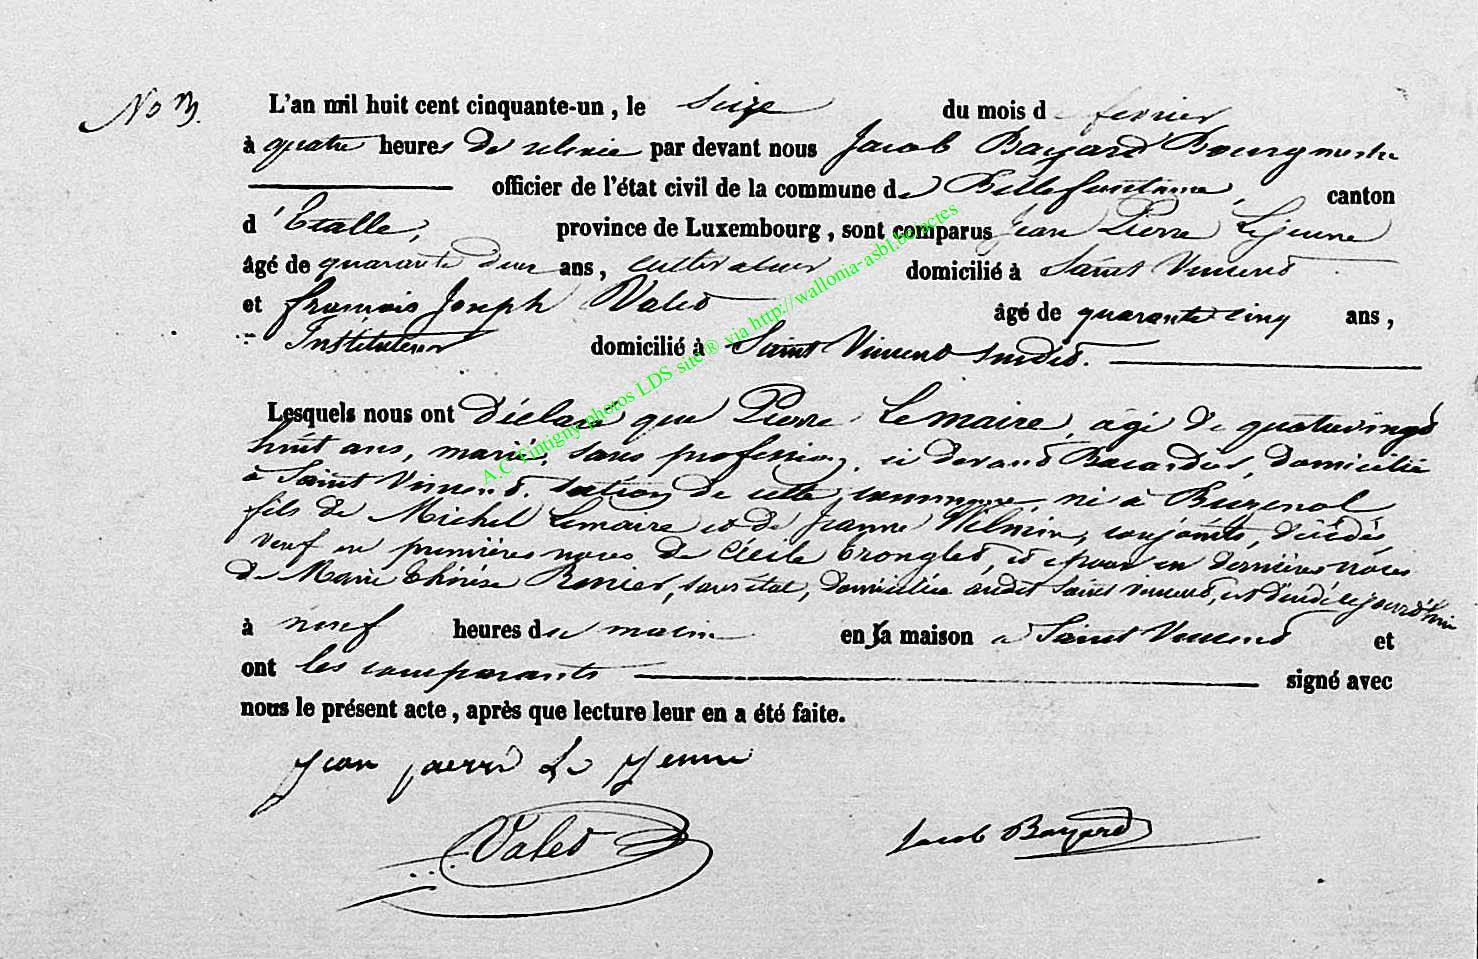 No 3.
L'an mil huit cent cinquante-un, le Seize du mois de fevrier
à quatre heures de relevée par devant nous Jacob Bayard Bourgmestre
officier de l'état civil de la commune de Bellefontaine, canton
d'Etalle, province de Luxembourg, sont comparus Jean Pierre Lejeune
âgé de quarante deux ans, cultivateur domicilié à Saint Vincent
et francois Joseph Valet âgé de quarante cinq ans,
Instituteur domicilié à Saint Vincent susdit.
Lesquels nous ont Déclaré que Pierre Lemaire, agé de quatrevingt
huit ans, marié, sans profession, ci devant domicilié
à Saint Vincent, section de cette commune, né à Buzenol
fils de Michel Lemaire et de Jeanne Wilmin, conjoints, décédés
veuf en premières noces de Cécile trongled, et epoux en dernières noces
de Marie thérèse Renier, sans état, domiciliée audit Saint Vincent, est décédé cejourd'hui
à neuf heures du matin en sa maison à Saint Vincent et
ont les comparants signé avec
nous le présent acte, après que lecture leur en a été faite.
Jean pierre Le Jeune
Valet
Jacob Bayard
A.C Tintigny photos LDS site® via http://wallonia-asbl.be/actes